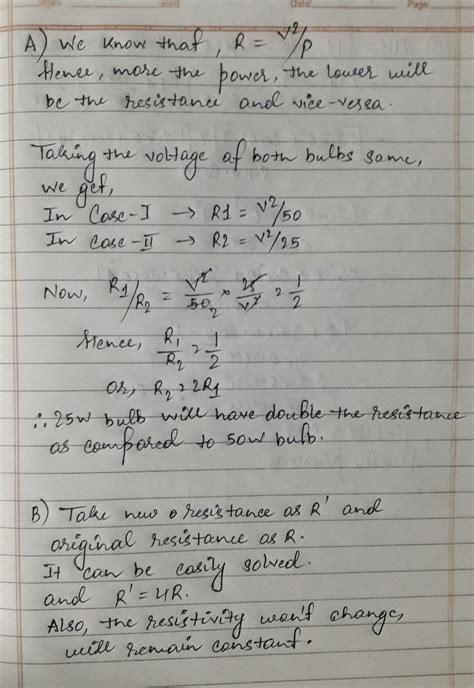 Date:
Page
A) We know that, R = V²/P
Hence, more the power, the lower will
be the resistance and vice-versa.
Taking the voltage of both bulbs same,
we get,
In Case-I → R1 = V²/50
In Case-II → R2 = V²/25
Now, R1/R2 = V²/50 × 25/V² = 1/2
2
Hence, R1/R2 = 1/2
or, R2 = 2R1
∴ 25W bulb will have double the resistance
as compared to 50W bulb.
B) Take new resistance as R' and
original resistance as R.
It can be easily solved.
and R' = 4R.
Also, the resistivity won't change,
will remain constant.